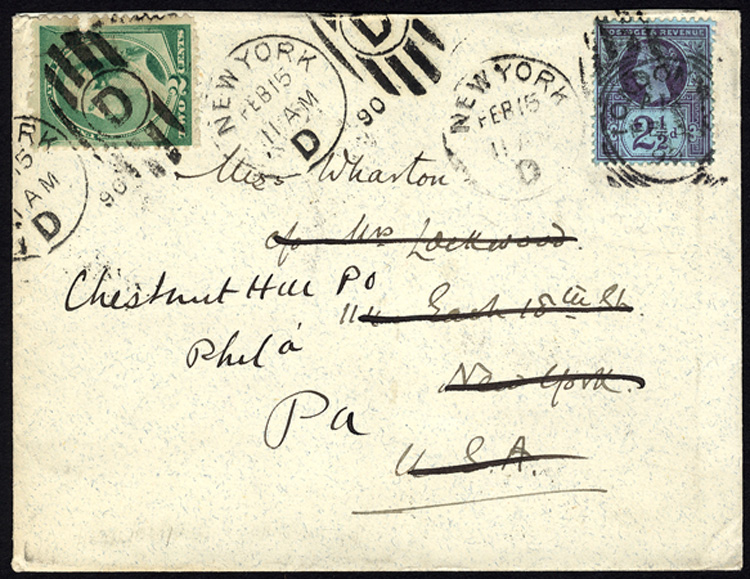 2 CENTS
TWO
D
90
NEW YORK
FEB 15
11 AM
D
D
90
NEW YORK
FEB 15
11
D
POSTAGE & REVENUE
2½d
K
15
AM
D
Miss Wharton
c/o Mrs Lockwood
Chestnut Hill PO
114 East 18th St.
Phil'a
New York.
Pa
U.S.A.